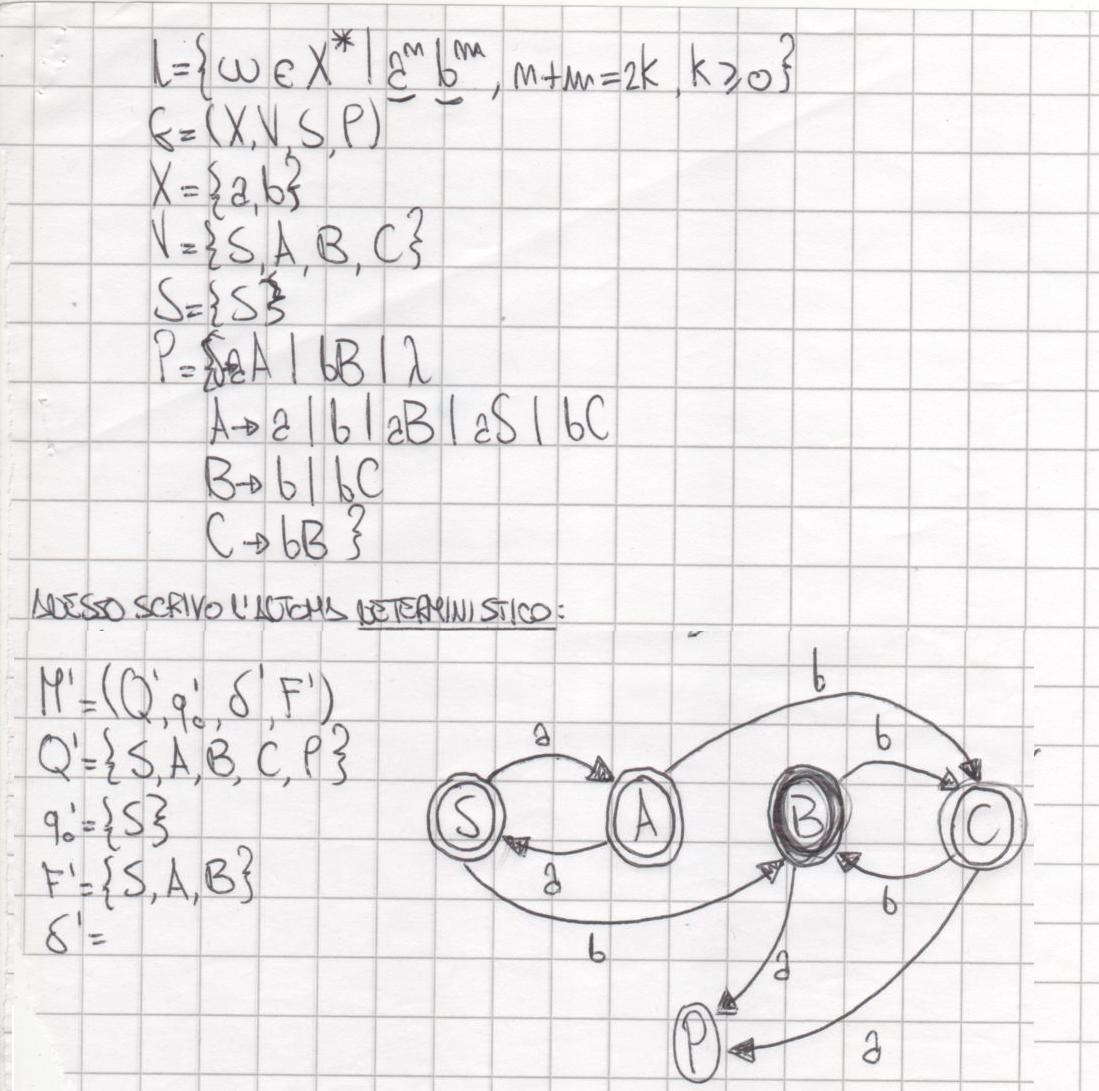 L={ω ∈ X* | aⁿ bᵐ, n+m=2k, k≥0}
G=(X,V,S,P)
X={a,b}
V={S,A,B,C}
S={S}
P={S→aA | bB | λ
A→a | b | aB | aS | bC
B→b | bC
C→bB}
ADESSO SCRIVO L'AUTOMA DETERMINISTICO:
M'=(Q',q₀',δ',F')
Q'={S,A,B,C,P}
q₀'={S}
F'={S,A,B}
δ'=
b
a b
S A B C
a b
b a
P a